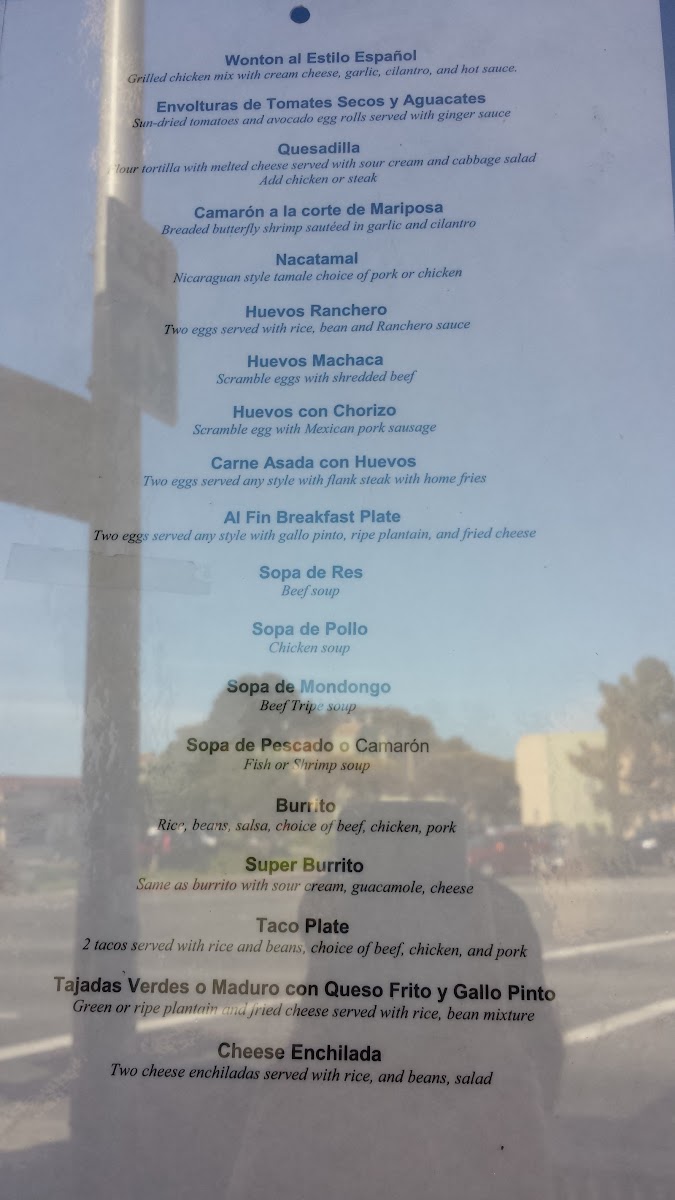 Wonton al Estilo Español
Grilled chicken mix with cream cheese, garlic, cilantro, and hot sauce.
Envolturas de Tomates Secos y Aguacates
Sun-dried tomatoes and avocado egg rolls served with ginger sauce
Quesadilla
Flour tortilla with melted cheese served with sour cream and cabbage salad
Add chicken or steak
Camarón a la corte de Mariposa
Breaded butterfly shrimp sautéed in garlic and cilantro
Nacatamal
Nicaraguan style tamale choice of pork or chicken
Huevos Ranchero
Two eggs served with rice, bean and Ranchero sauce
Huevos Machaca
Scramble eggs with shredded beef
Huevos con Chorizo
Scramble egg with Mexican pork sausage
Carne Asada con Huevos
Two eggs served any style with flank steak with home fries
Al Fin Breakfast Plate
Two eggs served any style with gallo pinto, ripe plantain, and fried cheese
Sopa de Res
Beef soup
Sopa de Pollo
Chicken soup
Sopa de Mondongo
Beef Tripe soup
Sopa de Pescado o Camarón
Fish or Shrimp soup
Burrito
Rice, beans, salsa, choice of beef, chicken, pork
Super Burrito
Same as burrito with sour cream, guacamole, cheese
Taco Plate
2 tacos served with rice and beans, choice of beef, chicken, and pork
Tajadas Verdes o Maduro con Queso Frito y Gallo Pinto
Green or ripe plantain and fried cheese served with rice, bean mixture
Cheese Enchilada
Two cheese enchiladas served with rice, and beans, salad